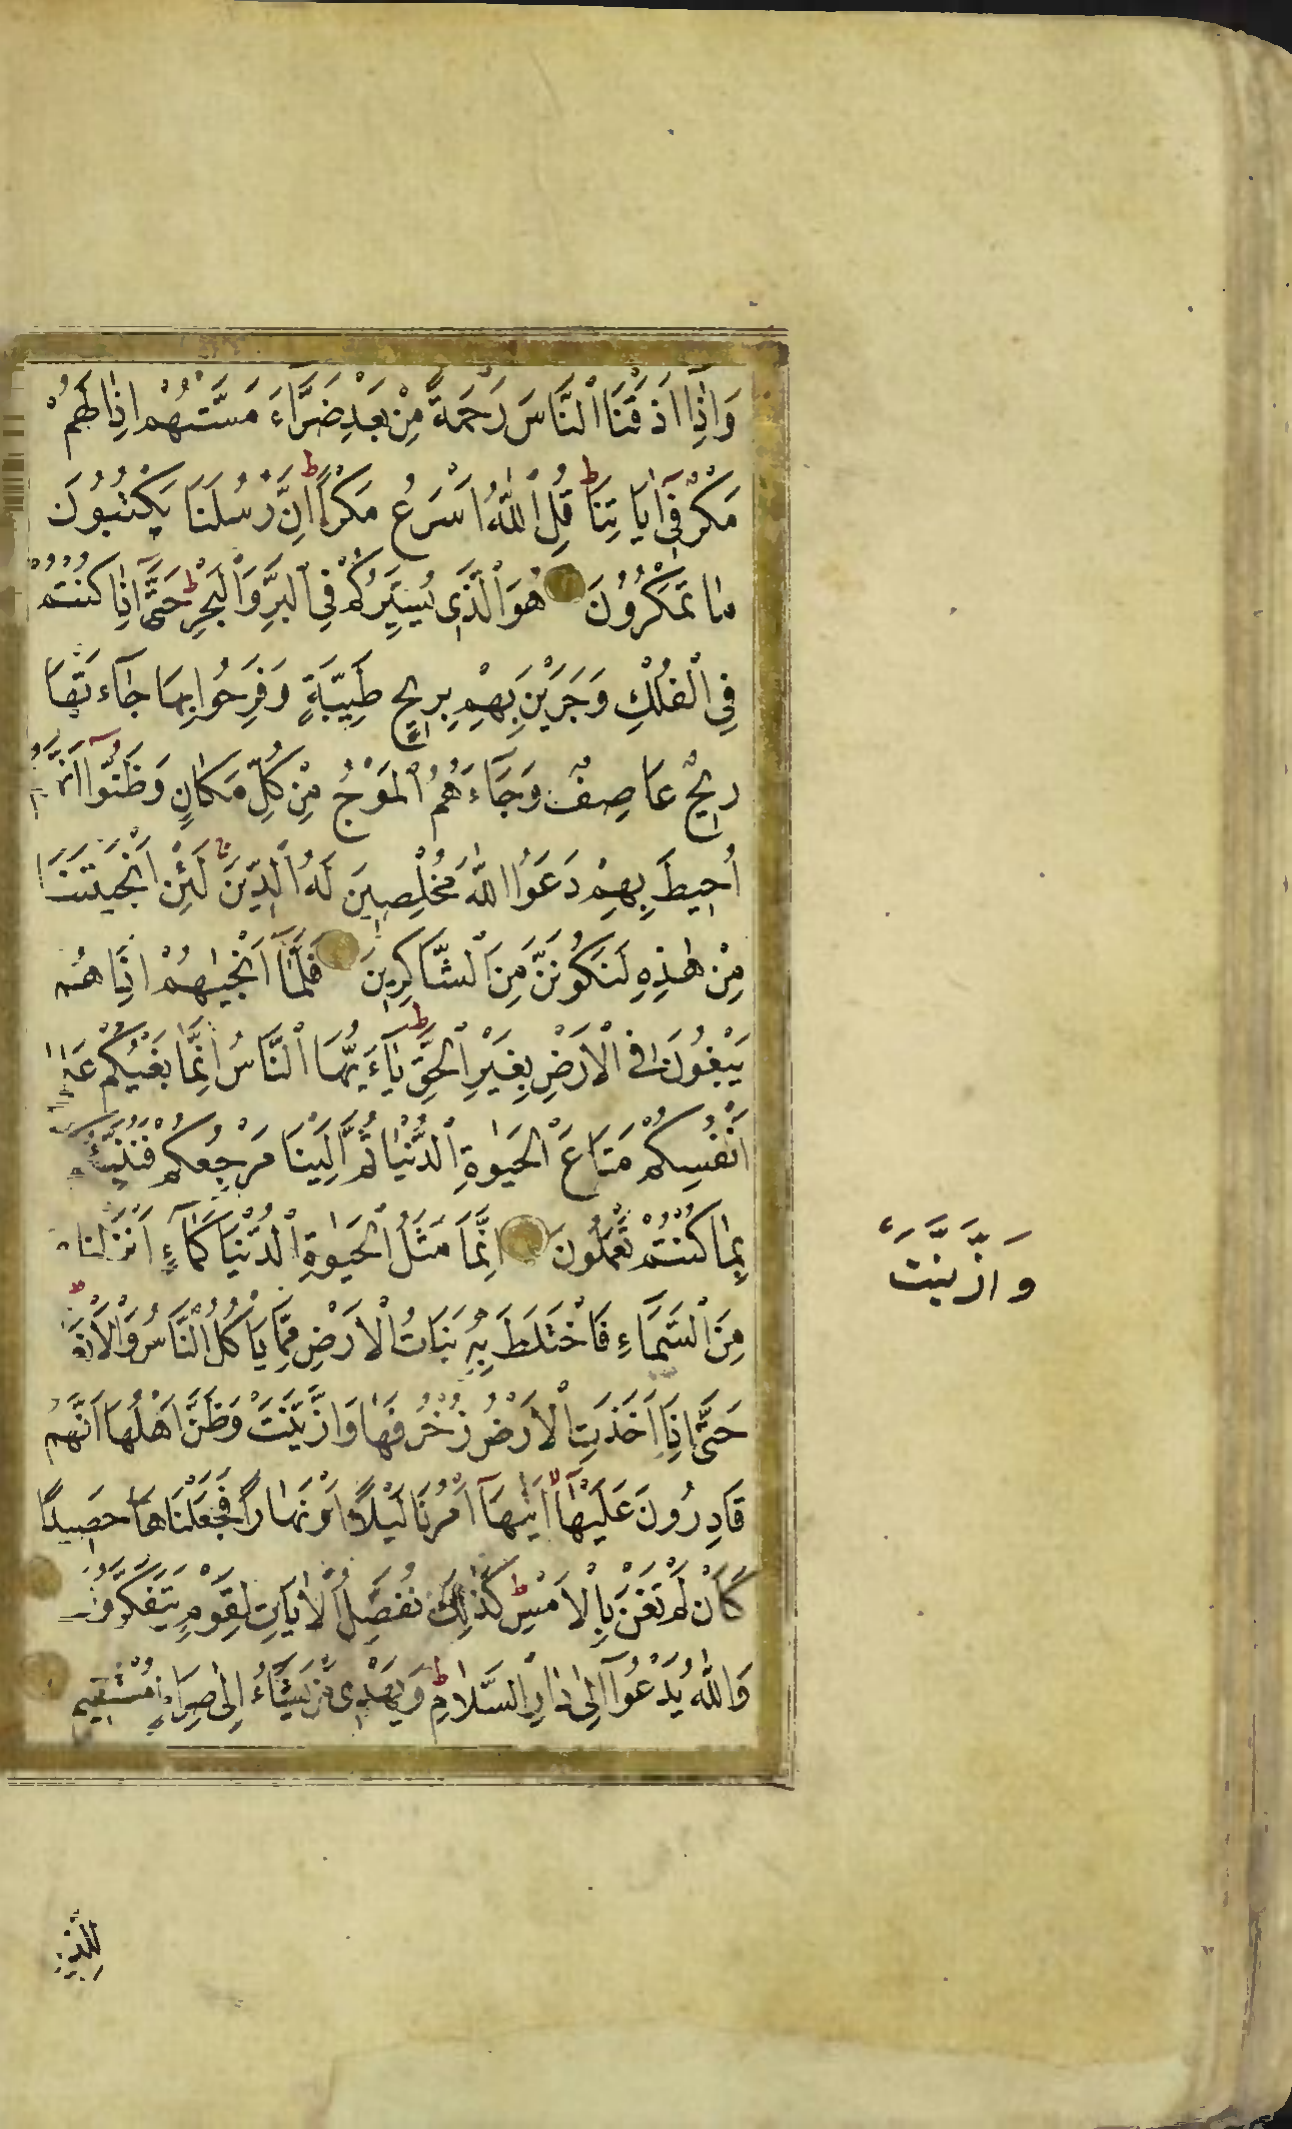 وَاِذَٓا اَذَقْنَا النَّاسَ رَحْمَةً مِنْ بَعْدِ ضَرَّٓاءَ مَسَّتْهُمْ اِذَا لَهُمْ
مَكْرٌ فِٓى اٰيَاتِنَا ط قُلِ اللّٰهُ اَسْرَعُ مَكْرًا ط اِنَّ رُسُلَنَا يَكْتُبُونَ
مَا تَمْكُرُونَ هُوَ الَّذِى يُسَيِّرُكُمْ فِى الْبَرِّ وَالْبَحْرِ ط حَتّٰٓى اِذَا كُنْتُمْ
فِى الْفُلْكِ وَجَرَيْنَ بِهِمْ بِرِيحٍ طَيِّبَةٍ وَفَرِحُوا بِهَا جَٓاءَتْهَا
رِيحٌ عَاصِفٌ وَجَٓاءَهُمُ الْمَوْجُ مِنْ كُلِّ مَكَانٍ وَظَنُّٓوا اَنَّهُمْ
اُحِيطَ بِهِمْ دَعَوُا اللّٰهَ مُخْلِصِينَ لَهُ الدِّينَ لَئِنْ اَنْجَيْتَنَا
مِنْ هٰذِهِ لَنَكُونَنَّ مِنَ الشَّاكِرِينَ فَلَمَّٓا اَنْجٰيهُمْ اِذَا هُمْ
يَبْغُونَ فِى الْاَرْضِ بِغَيْرِ الْحَقِّ ط يَٓاءَيُّهَا النَّاسُ اِنَّمَا بَغْيُكُمْ عَلٰٓى
اَنْفُسِكُمْ مَتَاعَ الْحَيٰوةِ الدُّنْيَا ثُمَّ اِلَيْنَا مَرْجِعُكُمْ فَنُنَبِّئُكُمْ
بِمَا كُنْتُمْ تَعْمَلُونَ اِنَّمَا مَثَلُ الْحَيٰوةِ الدُّنْيَا كَمَٓاءٍ اَنْزَلْنَاهُ
مِنَ السَّمَٓاءِ فَاخْتَلَطَ بِهِ نَبَاتُ الْاَرْضِ مِمَّا يَاْكُلُ النَّاسُ وَالْاَنْعَامُ ط
حَتّٰٓى اِذَٓا اَخَذَتِ الْاَرْضُ زُخْرُفَهَا وَازَّيَّنَتْ وَظَنَّ اَهْلُهَٓا اَنَّهُمْ
قَادِرُونَ عَلَيْهَٓا لا اَتٰيهَٓا اَمْرُنَا لَيْلًا اَوْ نَهَارًا فَجَعَلْنَاهَا حَصِيدًا
كَاَنْ لَمْ تَغْنَ بِالْاَمْسِ ط كَذٰلِكَ نُفَصِّلُ الْاٰيَاتِ لِقَوْمٍ يَتَفَكَّرُونَ
وَاللّٰهُ يَدْعُٓوا اِلٰى دَارِ السَّلَامِ ط وَيَهْدِى مَنْ يَشَٓاءُ اِلٰى صِرَاطٍ مُسْتَقِيمٍ
وَازَّيَّنَتْ
لِلَّذِينَ